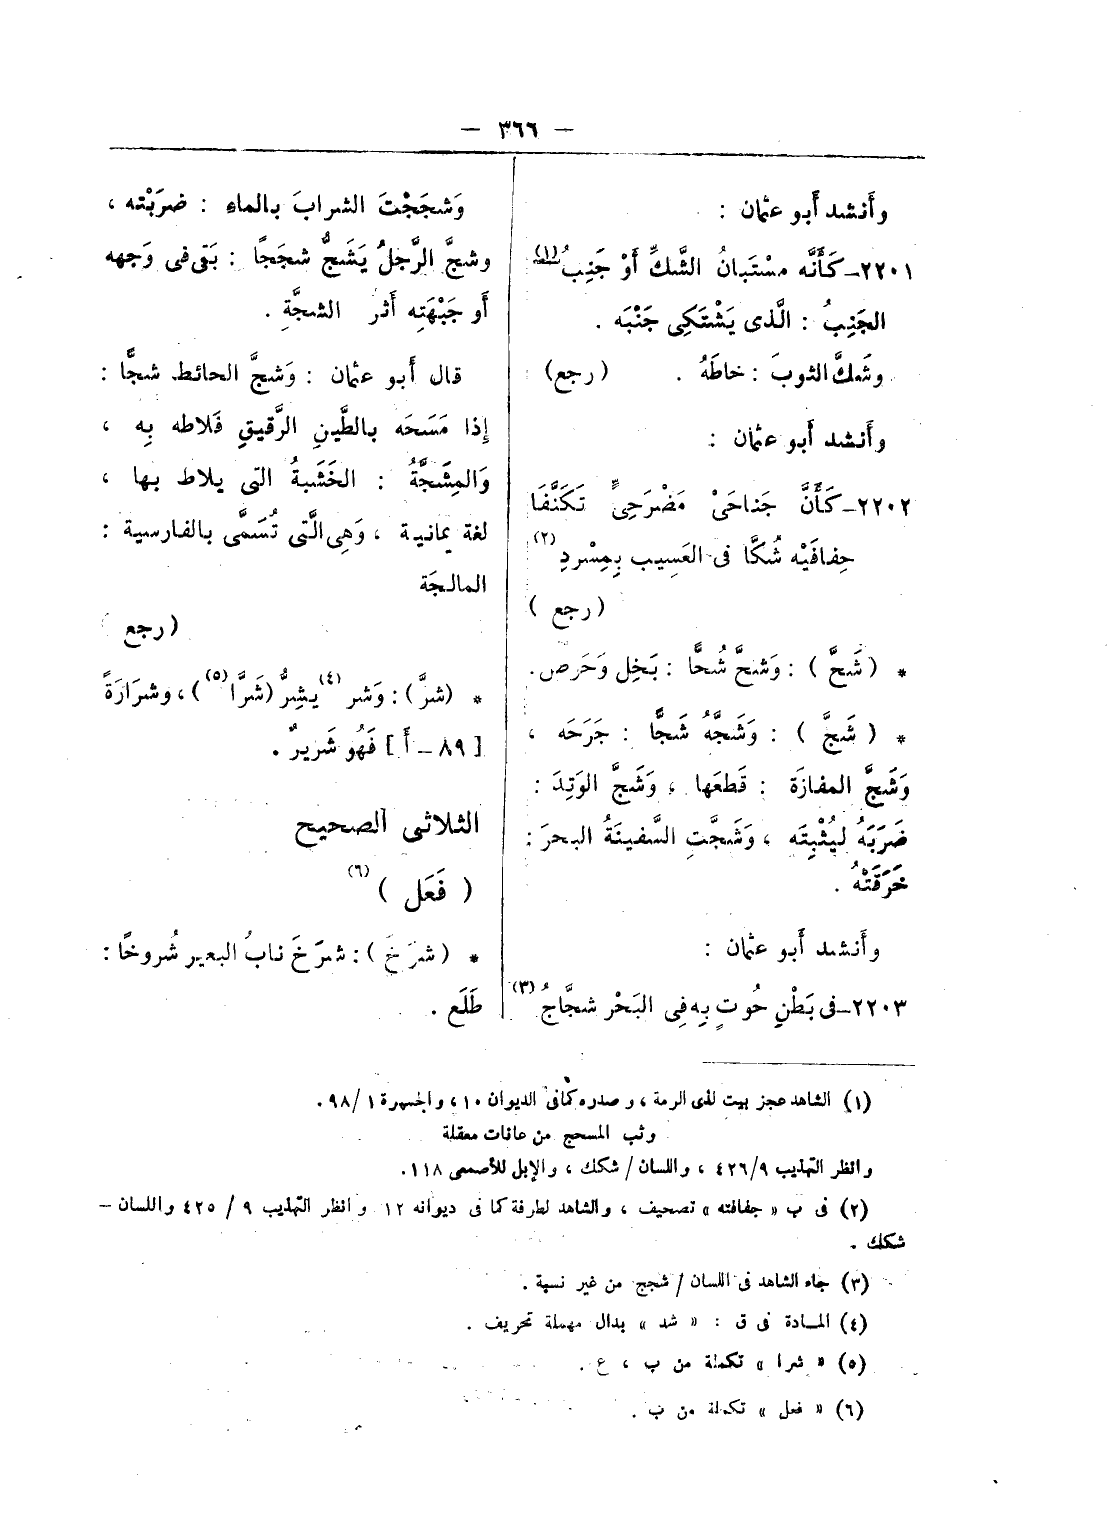 — ٣٦٦ —
وأنشد أبو عثمان :
٢٢٠١ـ كَأَنَّه مسْتَبانُ الشَّكِّ أَوْ جَنِبُ (١)
الجَنِبُ : الَّذى يَشْتَكِى جَنْبَه .
وشَكَّ الثوبَ : خاطَهُ . (رجع)
وأَنشد أَبو عثمان :
٢٢٠٢ـ كَأَنَّ جَناحَىْ مَضْرَحِىٍّ تَكَنَّفَا
حِفافَيْه شُكَّا فى العَسِيب بِمِسْردِ (٢)
(رجع )
* ( شَحَّ ) : وَشحَّ شُحًّا : بَخِل وَحَرص .
* ( شَجَّ ) : وَشَجَّهُ شَجًّا : جَرَحَه ،
وَشَجَّ المفازَة : قَطعَها ، وَشَجَّ الوَتِدَ :
ضَرَبَهُ ليُثْبِتَه ، وَشَجَّتِ السَّفينَةُ البحرَ :
خَرَقَتْهُ .
وأَنشد أَبو عثمان :
٢٢٠٣ـ فى بَطْنِ حُوتٍ بِه فِى البَحْر شجَّاجُ (٣)
وَشجَجْتَ الشرابَ بالماءِ : ضرَبْته ،
وشجَّ الرَّجلُ يَشَجُّ شجَجًا : بَقى فى وَجهه
أَو جَبْهَتِه أَثر الشجَّةِ .
قال أَبو عثمان : وَشجَّ الحائط شجًّا :
إِذا مَسَحَه بالطَّينِ الرَّقيقِ فَلاطه بِه ،
وَالمِشَجَّةُ : الخَشَبةُ التى يلاط بها ،
لغة يمانية ، وَهِى الَّتى تُسَمَّى بالفارسية :
المالَجَة
(رجع )
* (شرَّ) : وَشر (٤) يشِرُّ (شَرًّا (٥) ) ، وشرَارَةً
[ ٨٩ ـ أَ ] فَهُو شَريرٌ .
الثلاثى الصحيح
( فَعَل ) (٦)
* ( شرَخَ ) : شرَخَ نابُ البعير شُروخًا :
طَلَع .
(١) الشاهد عجز بيت لذى الرمة ، وصدره كما فى الديوان ١٠ ، والجمهرة ١ / ٩٨ .
وثب المسحج من عانات معقلة
وانظر التهذيب ٩/ ٤٢٦ ، واللسان / شكك ، والإبل للأصمعى ١١٨ .
(٢) فى ب « جفافته » تصحيف ، والشاهد لطرفة كما فى ديوانه ١٢ وانظر التهذيب ٩ / ٤٢٥ واللسان –
شكك .
(٣) جاء الشاهد فى اللسان / شجج من غير نسبة .
(٤) المادة فى ق : « شد » بدال مهملة تحريف .
(٥) « شرا » تكملة من ب ، ع .
(٦) « فعل » تكملة من ب .